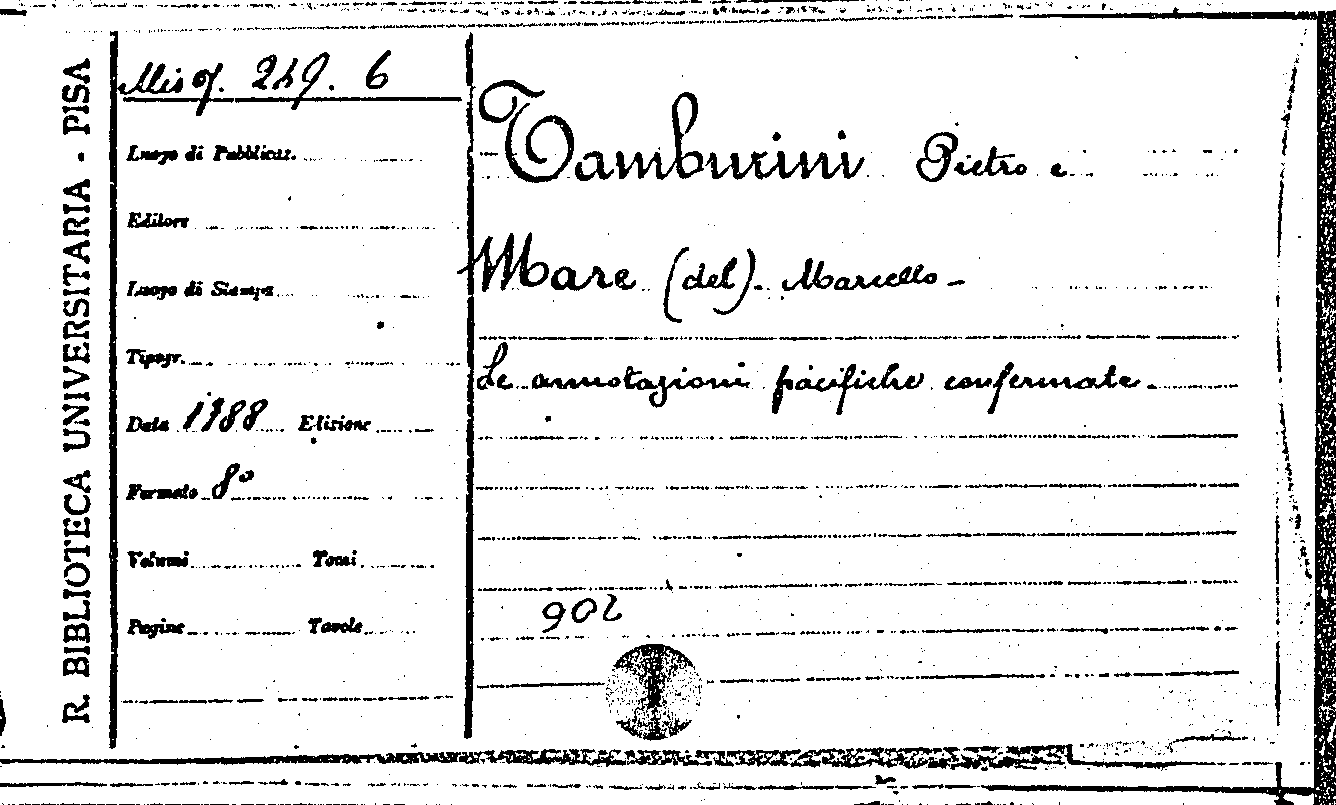 R. BIBLIOTECA UNIVERSITARIA - PISA
Misc. 249. 6
Luogo di Pubblicaz.
Editore
Luogo di Stampa
Tipogr.
Data 1788 Edizione
Formato 8°
Volumi Tomi
Pagine Tavole
Tamburini Pietro e
Mare (del). Marcello -
Le annotazioni pacifiche confermate.
902